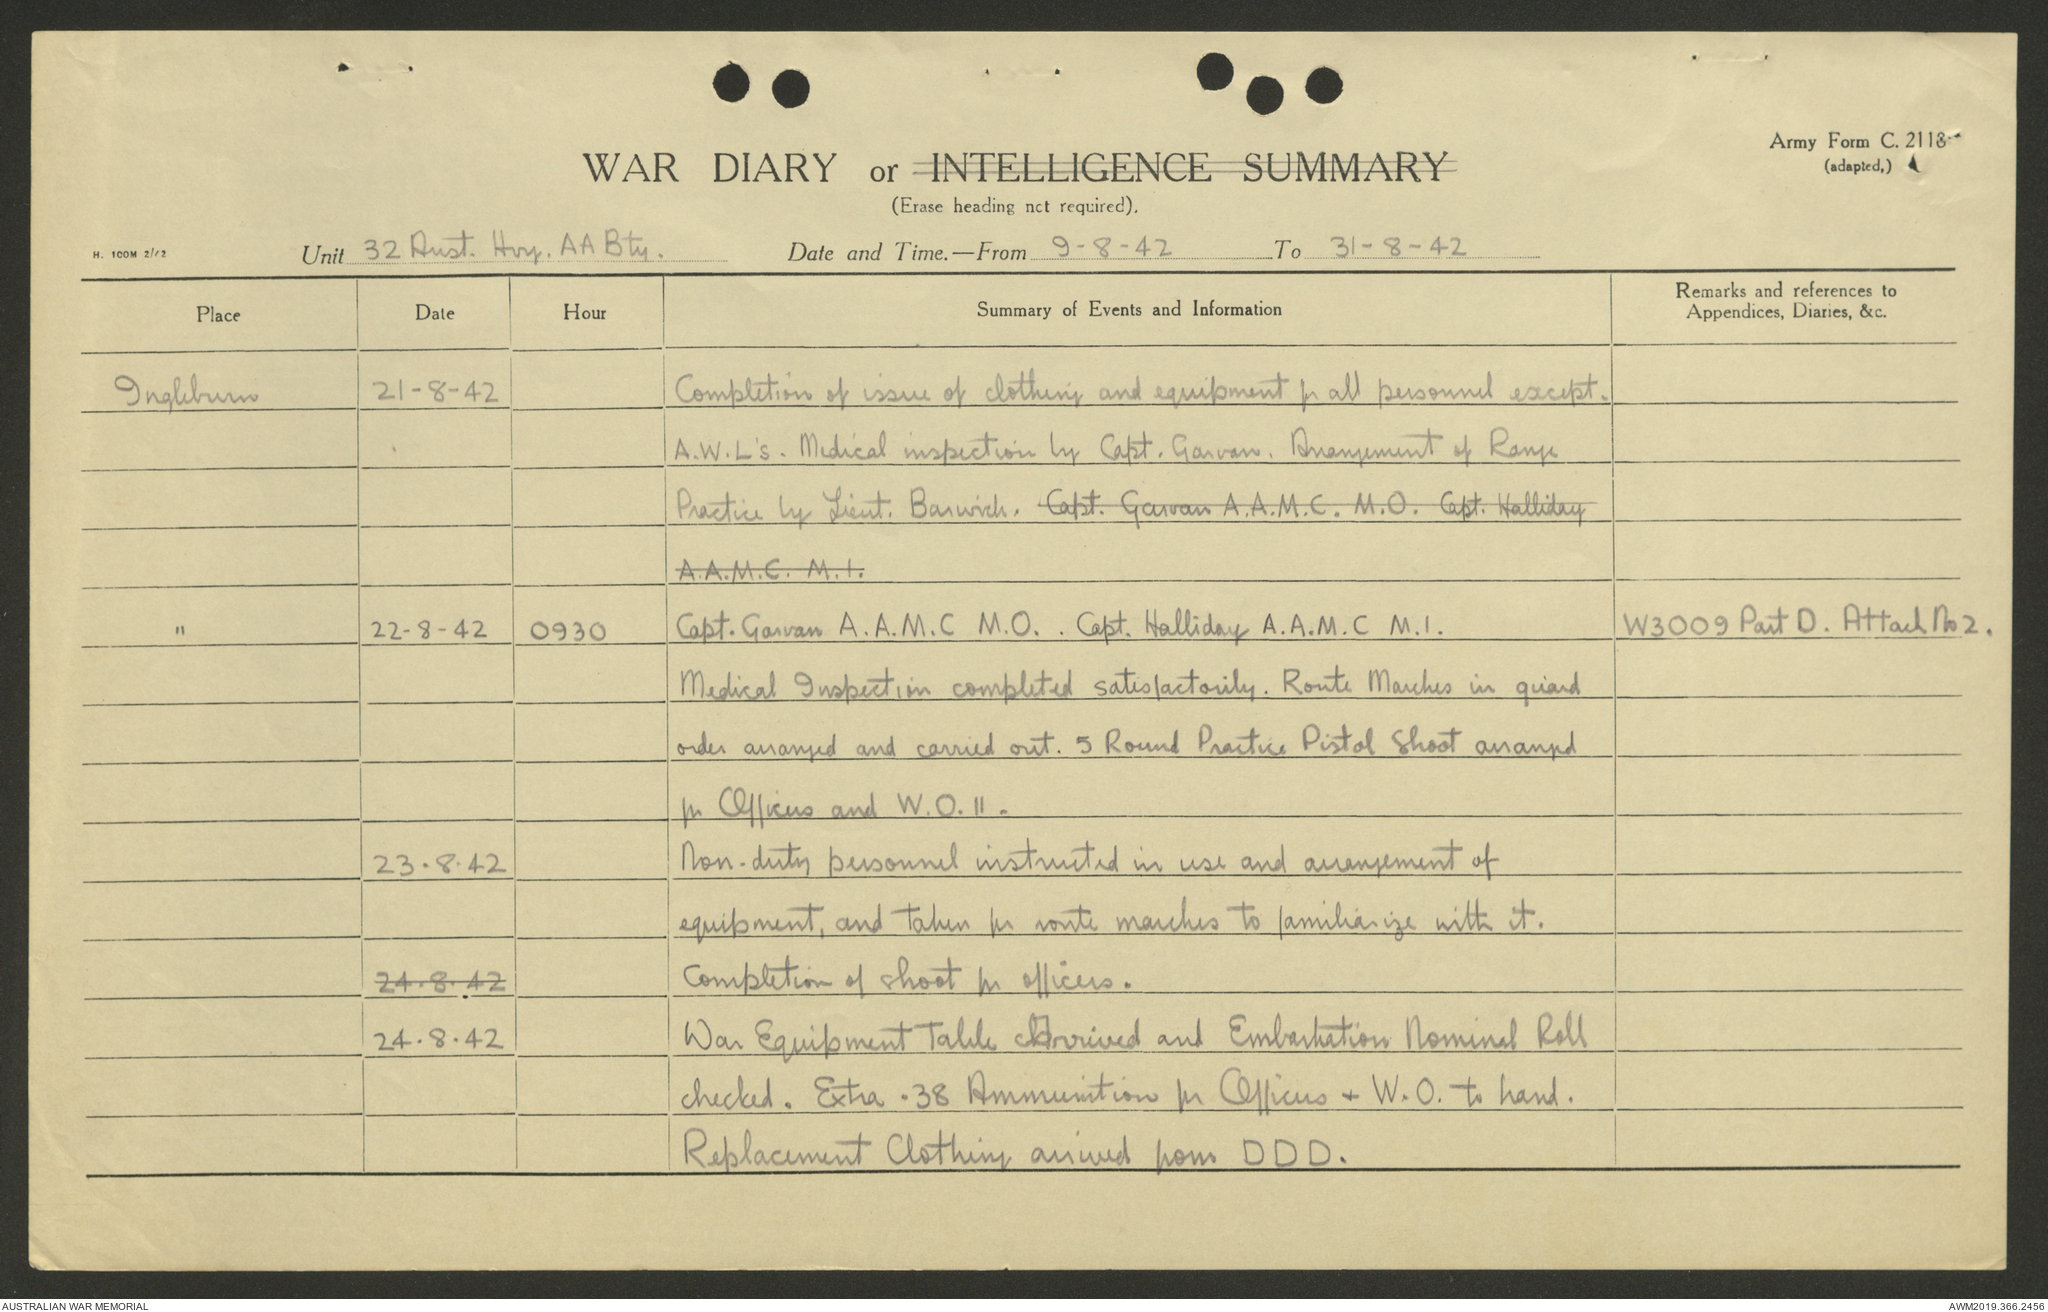 Army Form C. 2118
(adapted,)
WAR DIARY or INTELLIGENCE SUMMARY
(Erase heading not required).
H. 100M 2/42
Unit 32 Aust. Hvy. AA Bty. Date and Time.—From 9-8-42 To 31-8-42
Place Date Hour Summary of Events and Information Remarks and references to
Appendices, Diaries, &c.
Ingleburn 21-8-42 Completion of issue of clothing and equipment for all personnel except.
A.W.L's. Medical inspection by Capt. Garvan. Arrangement of Range
Practice by Lieut. Barwick. Capt. Garvan A.A.M.C. M.O. Capt. Halliday
A.A.M.C. M.I.
" 22-8-42 0930 Capt. Garvan A.A.M.C M.O. . Capt. Halliday A.A.M.C M.I. W3009 Part D. Attach No 2.
Medical Inspection completed satisfactorily. Route Marches in guard
order arranged and carried out. 5 Round Practice Pistol Shoot arranged
for Officers and W.O. II.
23.8.42 Non-duty personnel instructed in use and arrangement of
equipment, and taken for route marches to familiarize with it.
24.8.42 Completion of shoot for officers.
24.8.42 War Equipment Table arrived and Embarkation Nominal Roll
checked. Extra .38 Ammunition for Officers + W.O. to hand.
Replacement Clothing arrived from DDD.
AUSTRALIAN WAR MEMORIAL AWM2019.366.2456